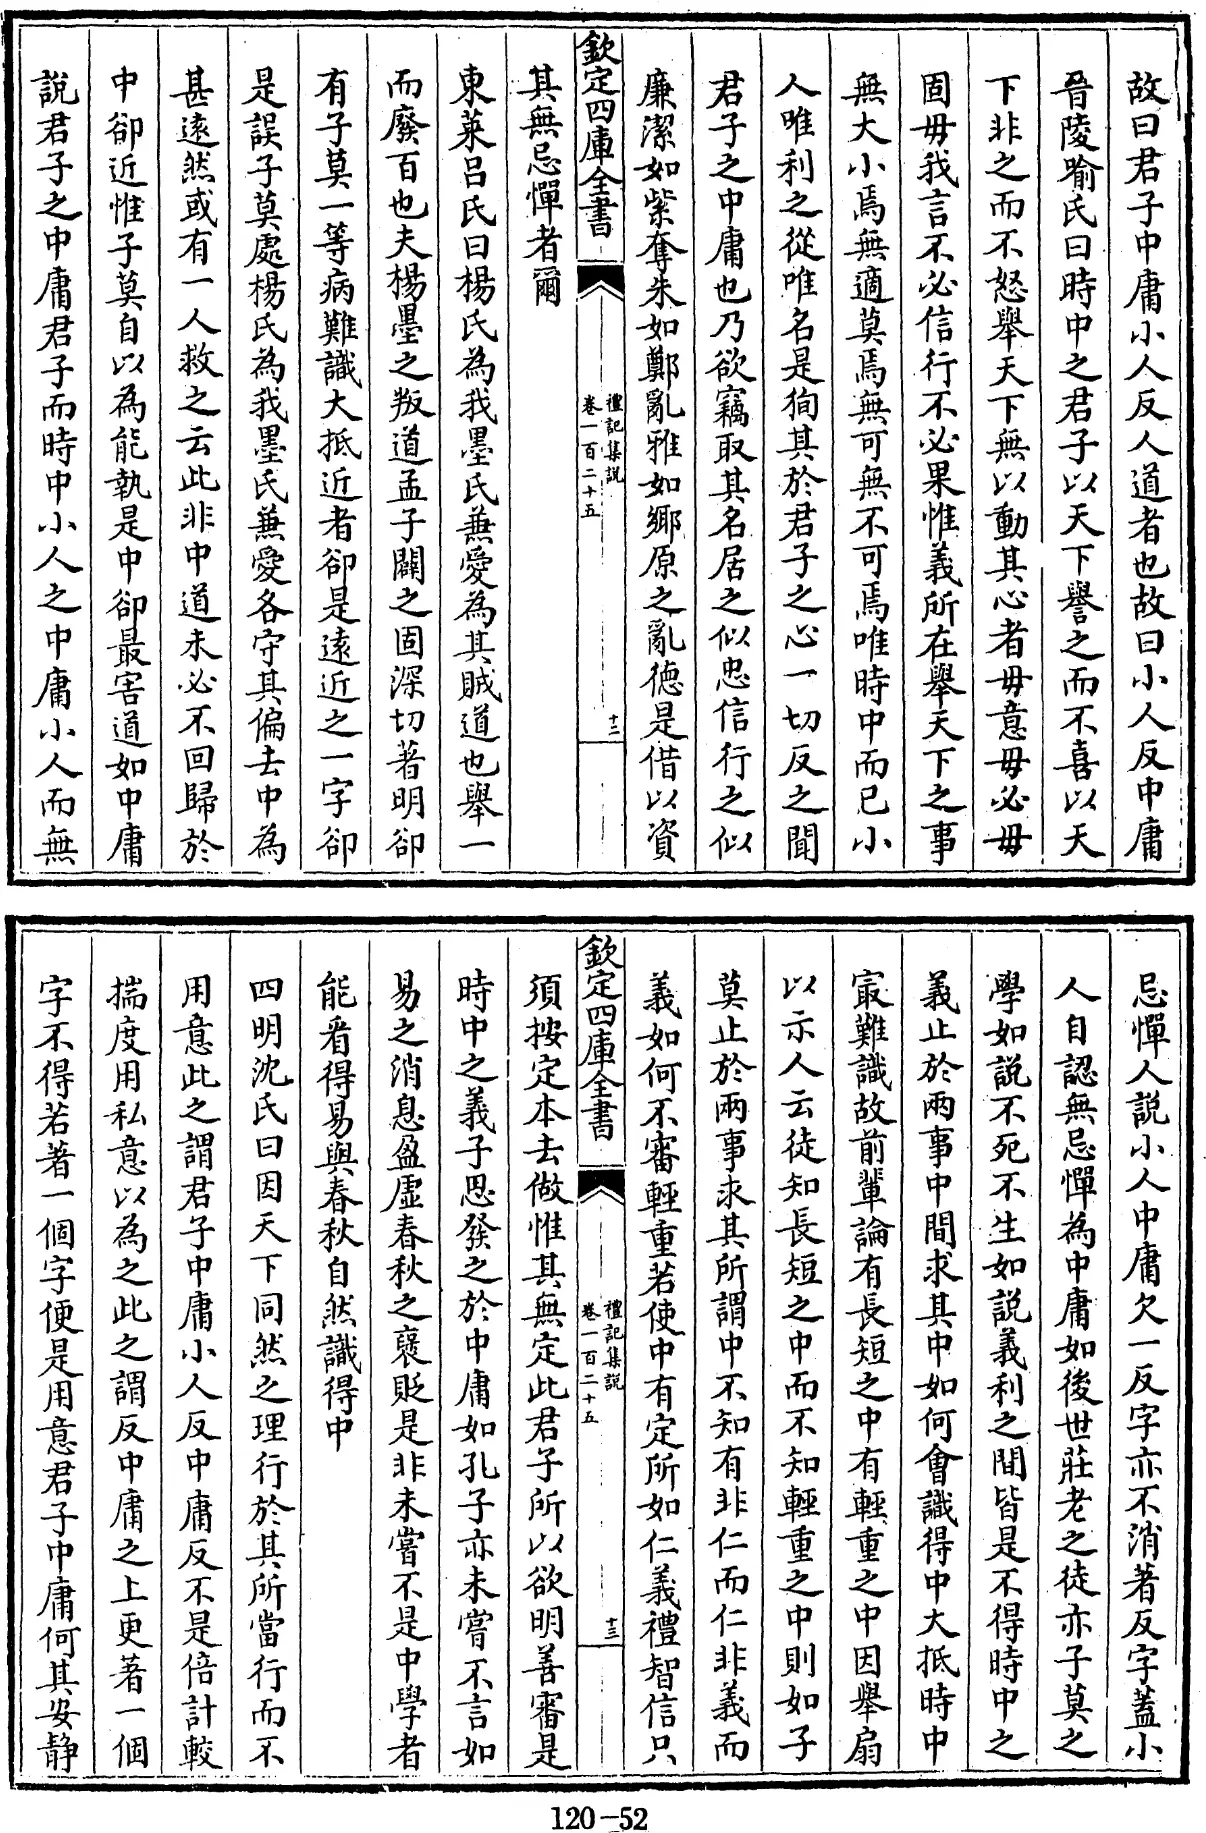 故曰君子中庸小人反人道者也故曰小人反中庸
晉陵喻氏曰時中之君子以天下譽之而不喜以天
下非之而不怒舉天下無以動其心者毋意毋必毋
固毋我言不必信行不必果惟義所在舉天下之事
無大小焉無適莫焉無可無不可焉唯時中而已小
人唯利之從唯名是狥其於君子之心一切反之聞
君子之中庸也乃欲竊取其名居之似忠信行之似
廉潔如紫奪朱如鄭亂雅如鄉原之亂德是借以資
欽定四庫全書
禮記集說
卷一百二十五
十二
其無忌憚者爾
東萊呂氏曰楊氏為我墨氏兼愛為其賊道也舉一
而廢百也夫楊墨之叛道孟子闢之固深切著明卻
有子莫一等病難識大抵近者卻是遠近之一字卻
是誤子莫處楊氏為我墨氏兼愛各守其偏去中為
甚遠然或有一人救之云此非中道未必不回歸於
中卻近惟子莫自以為能執是中卻最害道如中庸
說君子之中庸君子而時中小人之中庸小人而無
忌憚人說小人中庸欠一反字亦不消著反字蓋小
人自認無忌憚為中庸如後世莊老之徒亦子莫之
學如說不死不生如說義利之間皆是不得時中之
義止於兩事中間求其中如何會識得中大抵時中
㝡難識故前輩論有長短之中有輕重之中因舉扇
以示人云徒知長短之中而不知輕重之中則如子
莫止於兩事求其所謂中不知有非仁而仁非義而
義如何不審輕重若使中有定所如仁義禮智信只
欽定四庫全書
禮記集說
卷一百二十五
十三
須按定本去做惟其無定此君子所以欲明善審是
時中之義子思發之於中庸如孔子亦未嘗不言如
易之消息盈虛春秋之襃貶是非未嘗不是中學者
能看得易與春秋自然識得中
四明沈氏曰因天下同然之理行於其所當行而不
用意此之謂君子中庸小人反中庸反不是倍計較
揣度用私意以為之此之謂反中庸之上更著一個
字不得若著一個字便是用意君子中庸何其安靜
120-52